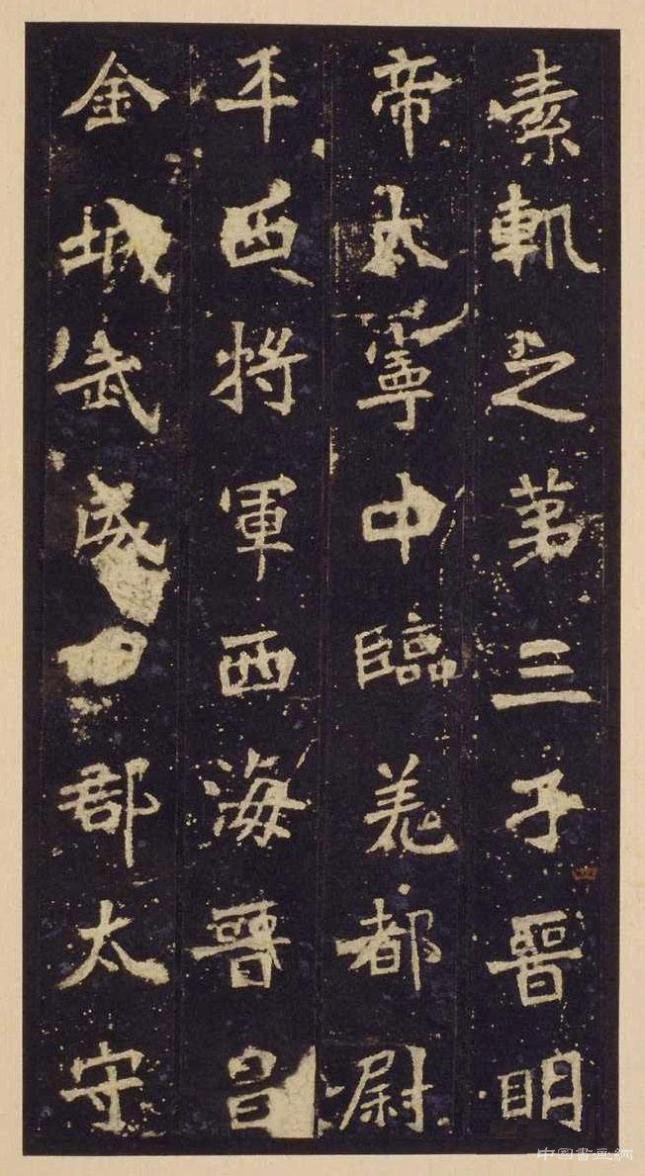 素軌之苐三子晉明
帝太寧中臨羌都尉
平西將軍西海晉昌
金城武威四郡太守
中国書画網